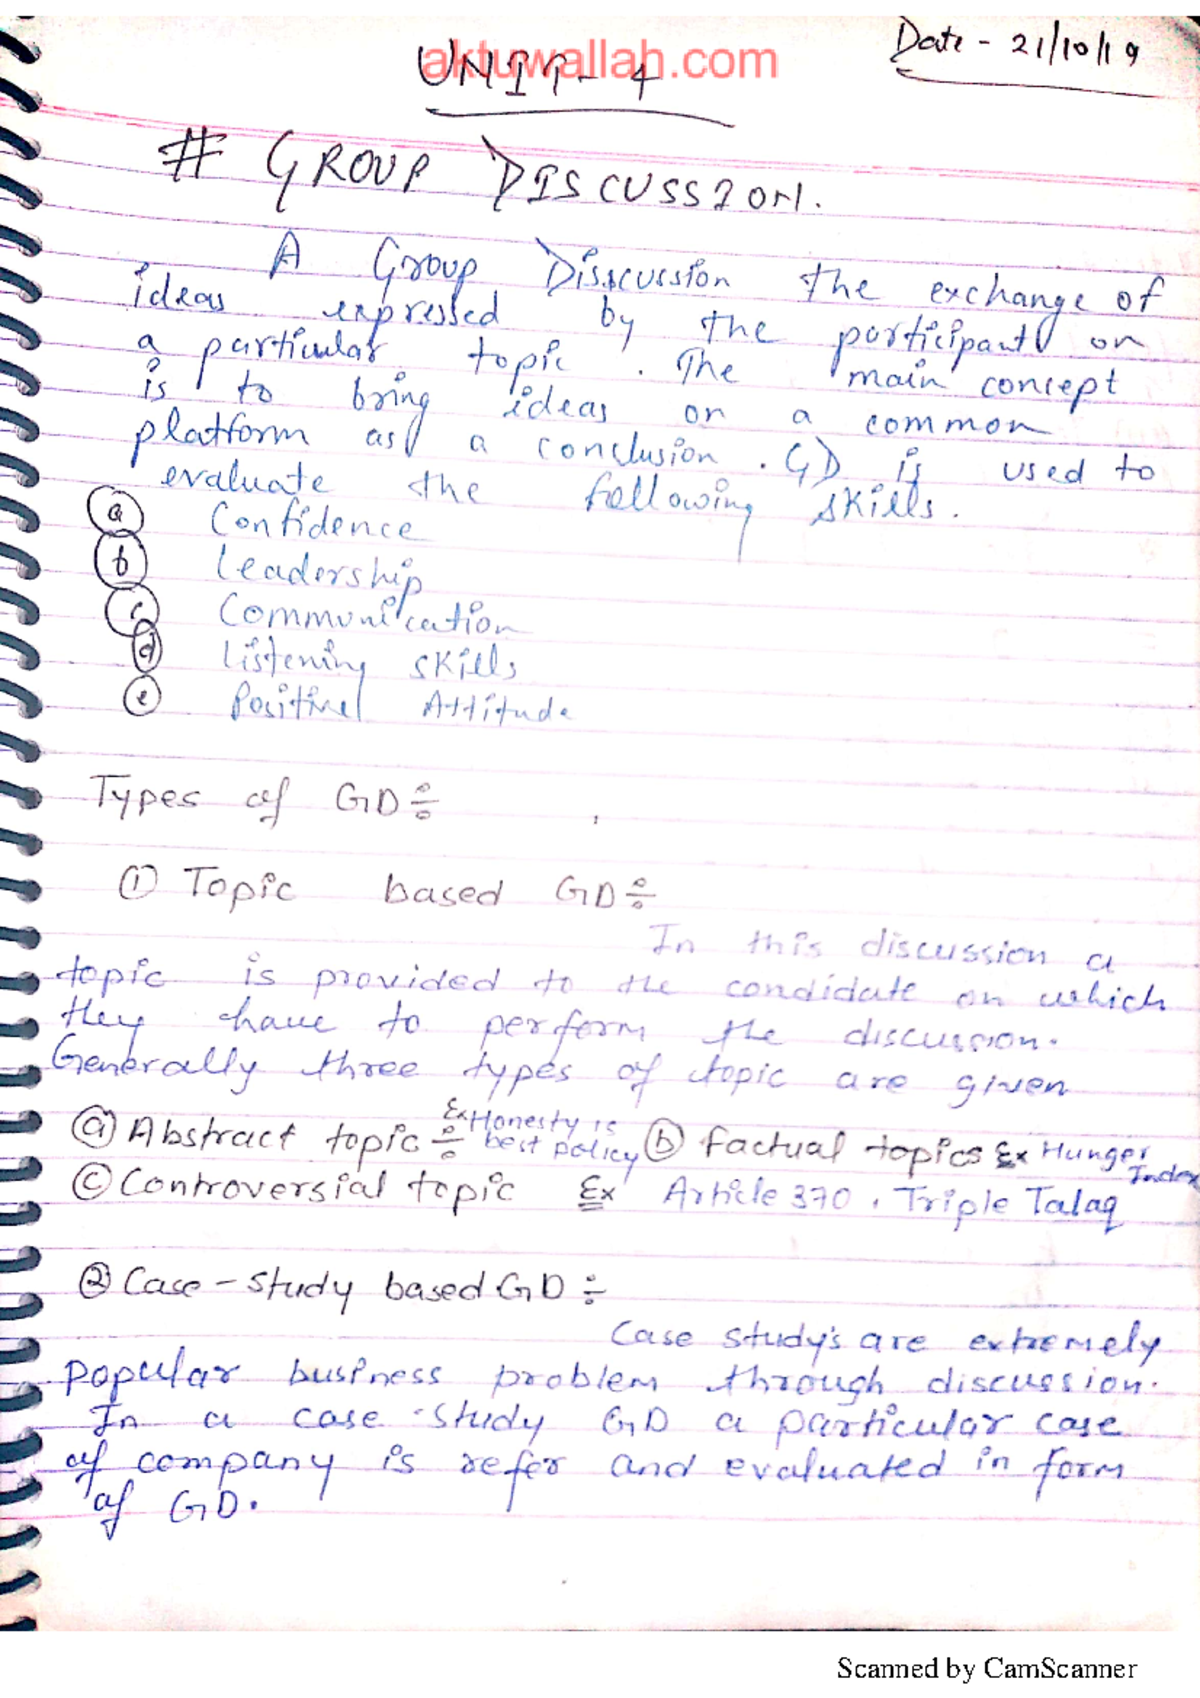 Date - 21/10/19
aktuwallah.com
UNIT - 4
# GROUP DISCUSSION.
A Group Disscussion the exchange of
ideas expressed by the participants on
a particular topic. The main concept
is to bring ideas on a common
platform as a conclusion. GD is used to
evaluate the following skills.
(a) Confidence
(b) Leadership
(c) Communication
(d) Listening skills
(e) Positive Attitude
Types of GD ÷
① Topic based GD ÷
In this discussion a
topic is provided to the candidate on which
they have to perform the discussion.
Generally three types of topic are given
(a) Abstract topic ÷ Ex Honesty is best policy (b) factual topics Ex Hunger Index
(c) Controversial topic Ex Article 370, Triple Talaq
② Case - study based GD ÷
Case study's are extremely
popular business problem through discussion.
In a case - study GD a particular case
of company is refer and evaluated in form
of GD.
Scanned by CamScanner